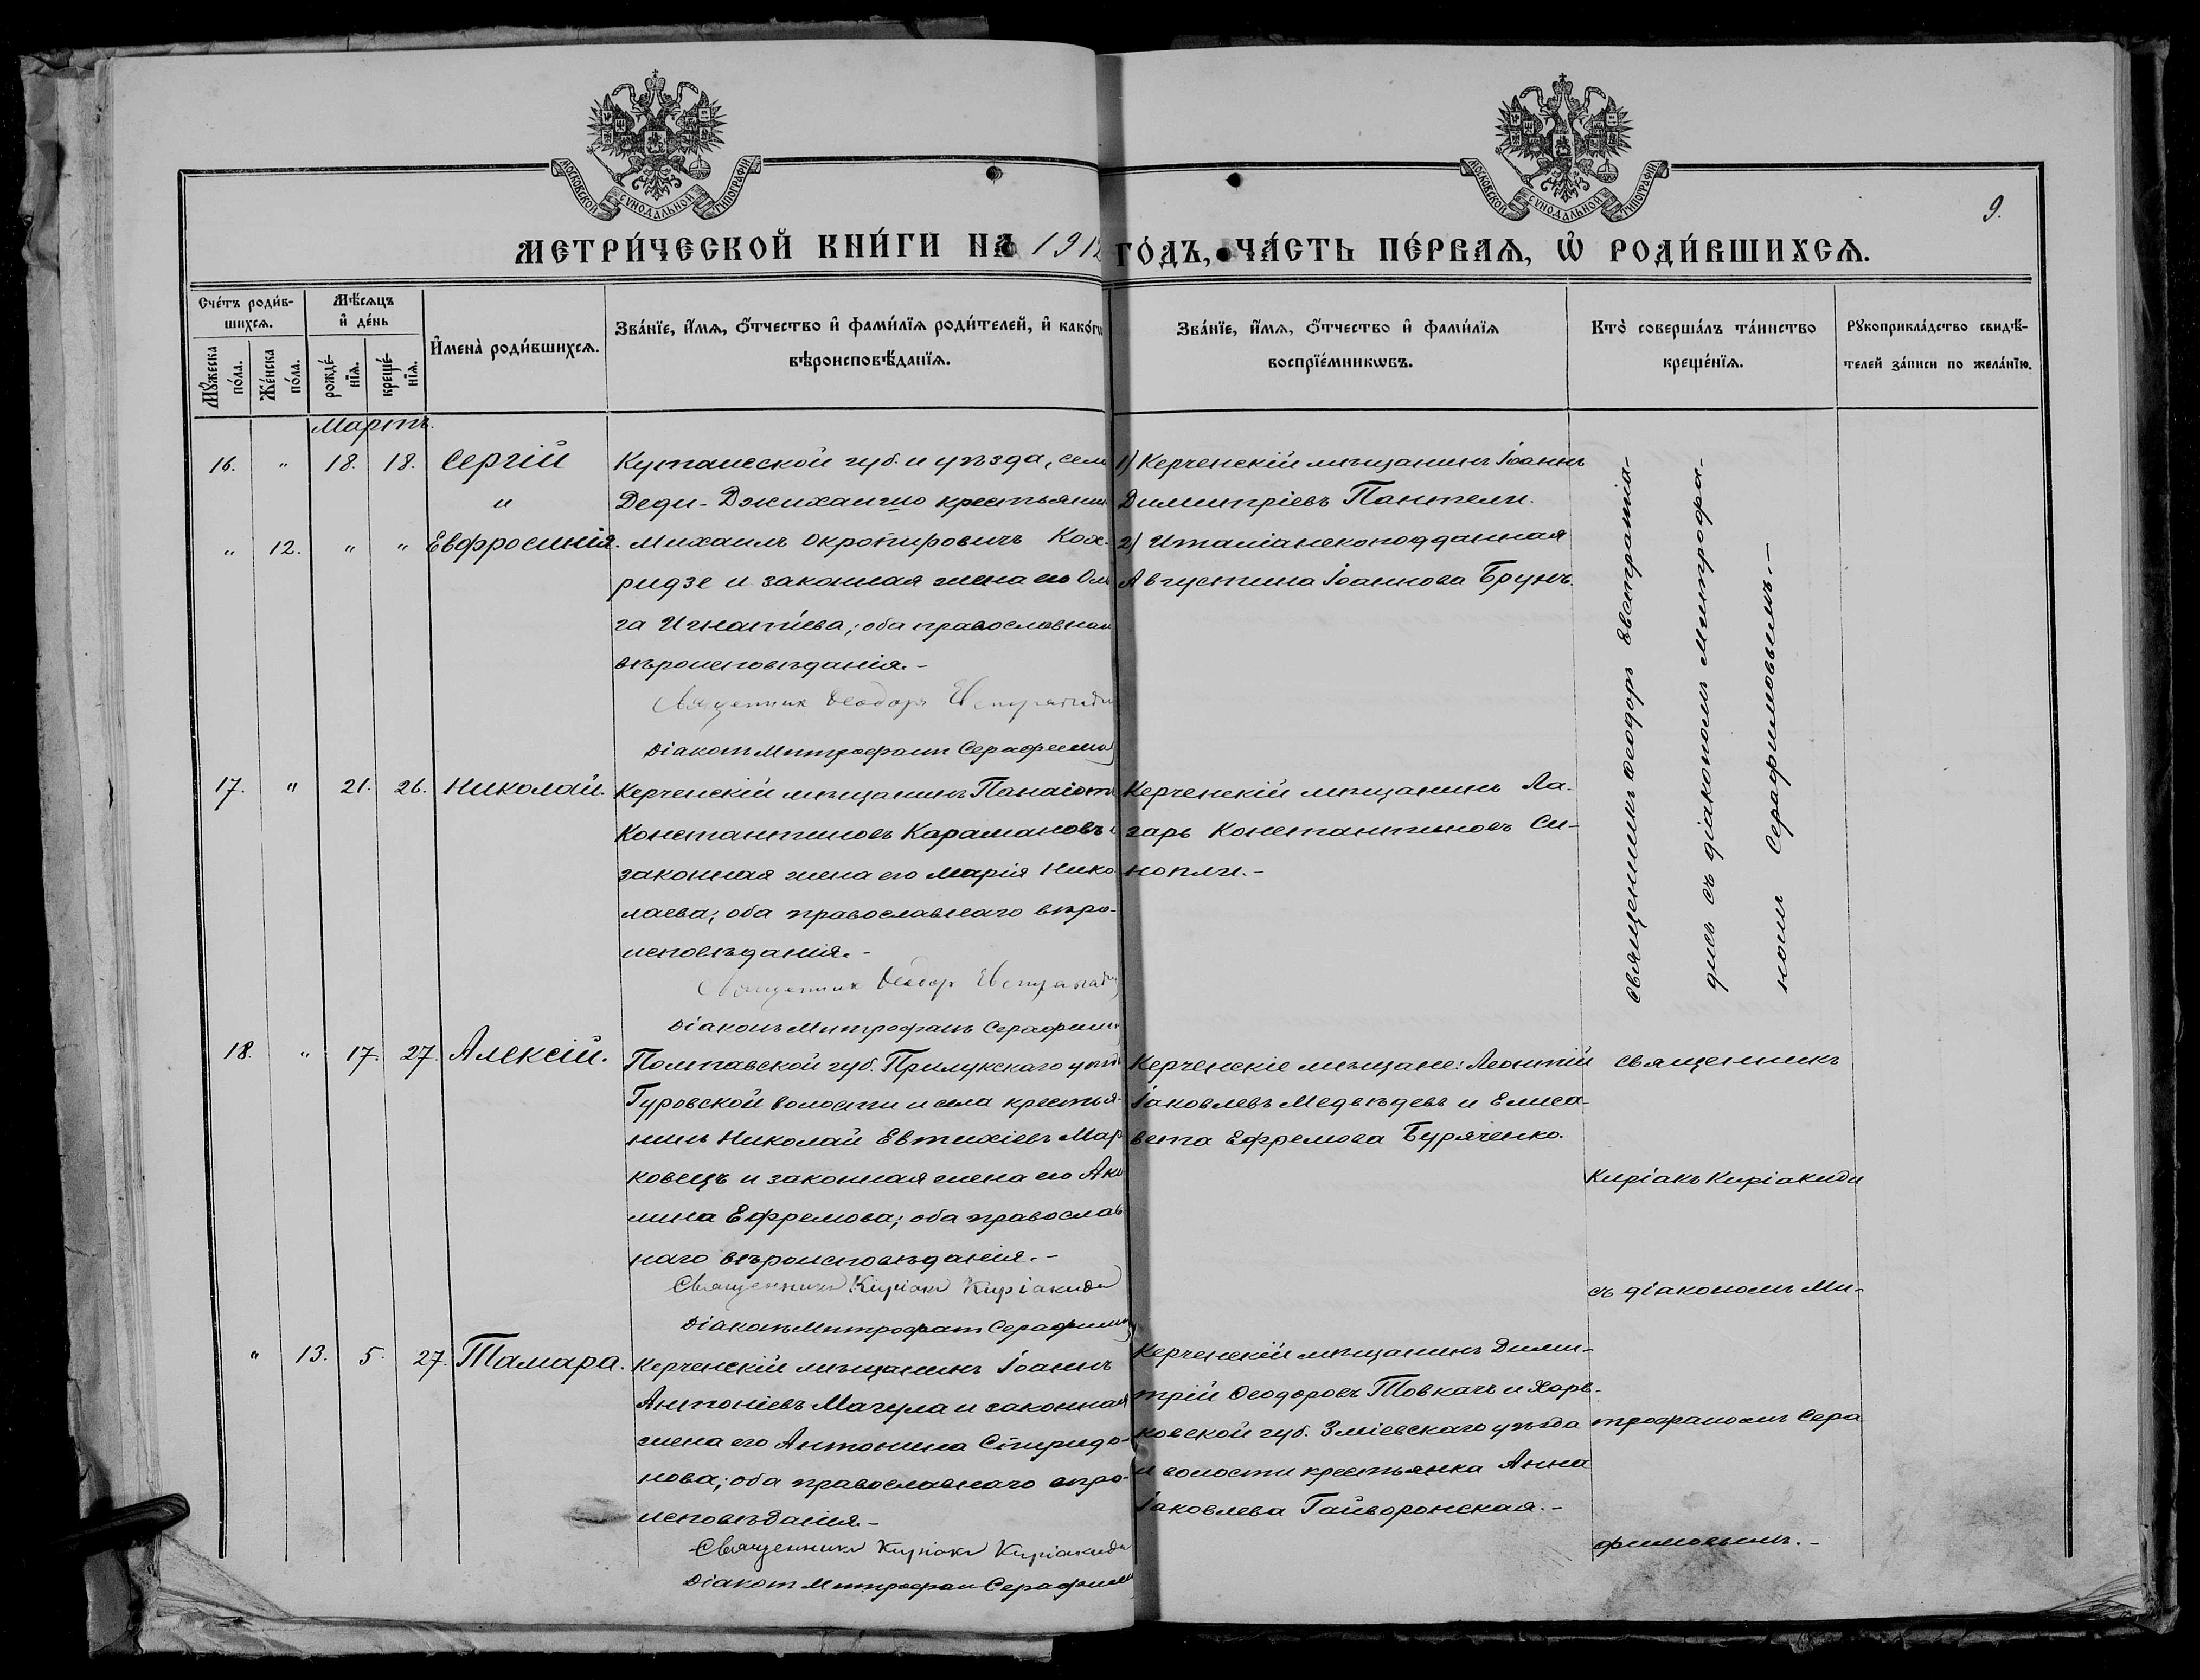 МОСКОВСКОЙ СѴНОДАЛЬНОЙ ТИПОГРАФІИ
МОСКОВСКОЙ СѴНОДАЛЬНОЙ ТИПОГРАФІИ
9.
МЕТРИ́ЧЕСКОЙ КНИ́ГИ НА 1912 ГО́ДЪ, ЧА́СТЬ ПЕ́РВАѦ, Ѡ҆ РОДИ́ВШИХСѦ.
Сче́тъ роди́в-
шихсѧ.
Мꙋ́жеска по́ла.
Же́нска по́ла.
Мѣ́сѧцъ
и҆ де́нь
рожде́-
нїѧ.
креще́-
нїѧ.
И҆мена̀ роди́вшихсѧ.
Зва́нїе, и҆́мѧ, ѻ҆́тчество и҆ фами́лїѧ роди́телей, и҆ како́гѡ
вѣроисповѣ́данїѧ.
Зва́нїе, и҆́мѧ, ѻ҆́тчество и҆ фами́лїѧ
воспрїе́мникѡвъ.
Кто̀ соверша́лъ та́инство
креще́нїѧ.
Рꙋкоприкла́дство свидѣ́-
телей за́писи по жела́нїю.
Мартъ.
16. " 18. 18. Сергій
"
" 12. " " Евфросинія.
Кутаисской губ. и уѣзда, села
Деди-Джихаишо крестьянин
Михаилъ Окропировичъ Кох-
ридзе и законная жена его Оль
га Игнатіева; оба православнаго
вѣроисповѣданія.-
Священник Ѳеодоръ Евстратиди
Діаконъ Митрофанъ Серафимов
1) Керченскій мѣщанинъ Іоаннъ
Димитріевъ Пантели.
2) Италіанскоподданная
Августина Іоаннова Брунъ.
Священникъ Ѳеодоръ Евстратіа-
дисъ съ діакономъ Митрофа-
номъ Серафимовымъ.-
17. " 21. 26. Николай.
Керченскій мѣщанинъ Панаіотъ
Константиновъ Карамановъ и
законная жена его Марія Нико
лаева; оба православнаго вѣро-
исповѣданія.-
Священник Ѳеодор Евстратиди
Діаконъ Митрофанъ Серафимов
Керченскій мѣщанинъ Ла-
зарь Константиновъ Си-
нопли.-
18. " 17. 27. Алексій.
Полтавской губ. Прилукскаго уѣзда
Гуровской волости и села крестья-
нинъ Николай Евтихіевъ Мар
ковецъ и законная жена его Аки
лина Ефремова; оба православ
наго вѣроисповѣданія.-
Священникъ Киріакъ Киріакиди
Діаконъ Митрофанъ Серафимов
Керченскіе мѣщане: Леонтій
Іаковлевъ Медвѣдевъ и Елиса-
вета Ефремова Буряченко.
Священникъ
Киріакъ Киріакиди
съ діакономъ Ми-
трофаномъ Сера
фимовымъ.-
" 13. 5. 27. Тамара.
Керченскій мѣщанинъ Іоаннъ
Антоніевъ Магула и законная
жена его Антонина Спиридо-
нова; оба православнаго вѣро-
исповѣданія.-
Священникъ Киріакъ Киріакиди
Діаконъ Митрофан Серафимов
Керченскій мѣщанинъ Дими-
трій Ѳеодоровъ Товкачъ и Харь-
ковской губ. Зміевскаго уѣзда
и волости крестьянка Анна
Іаковлева Гайворонская.-